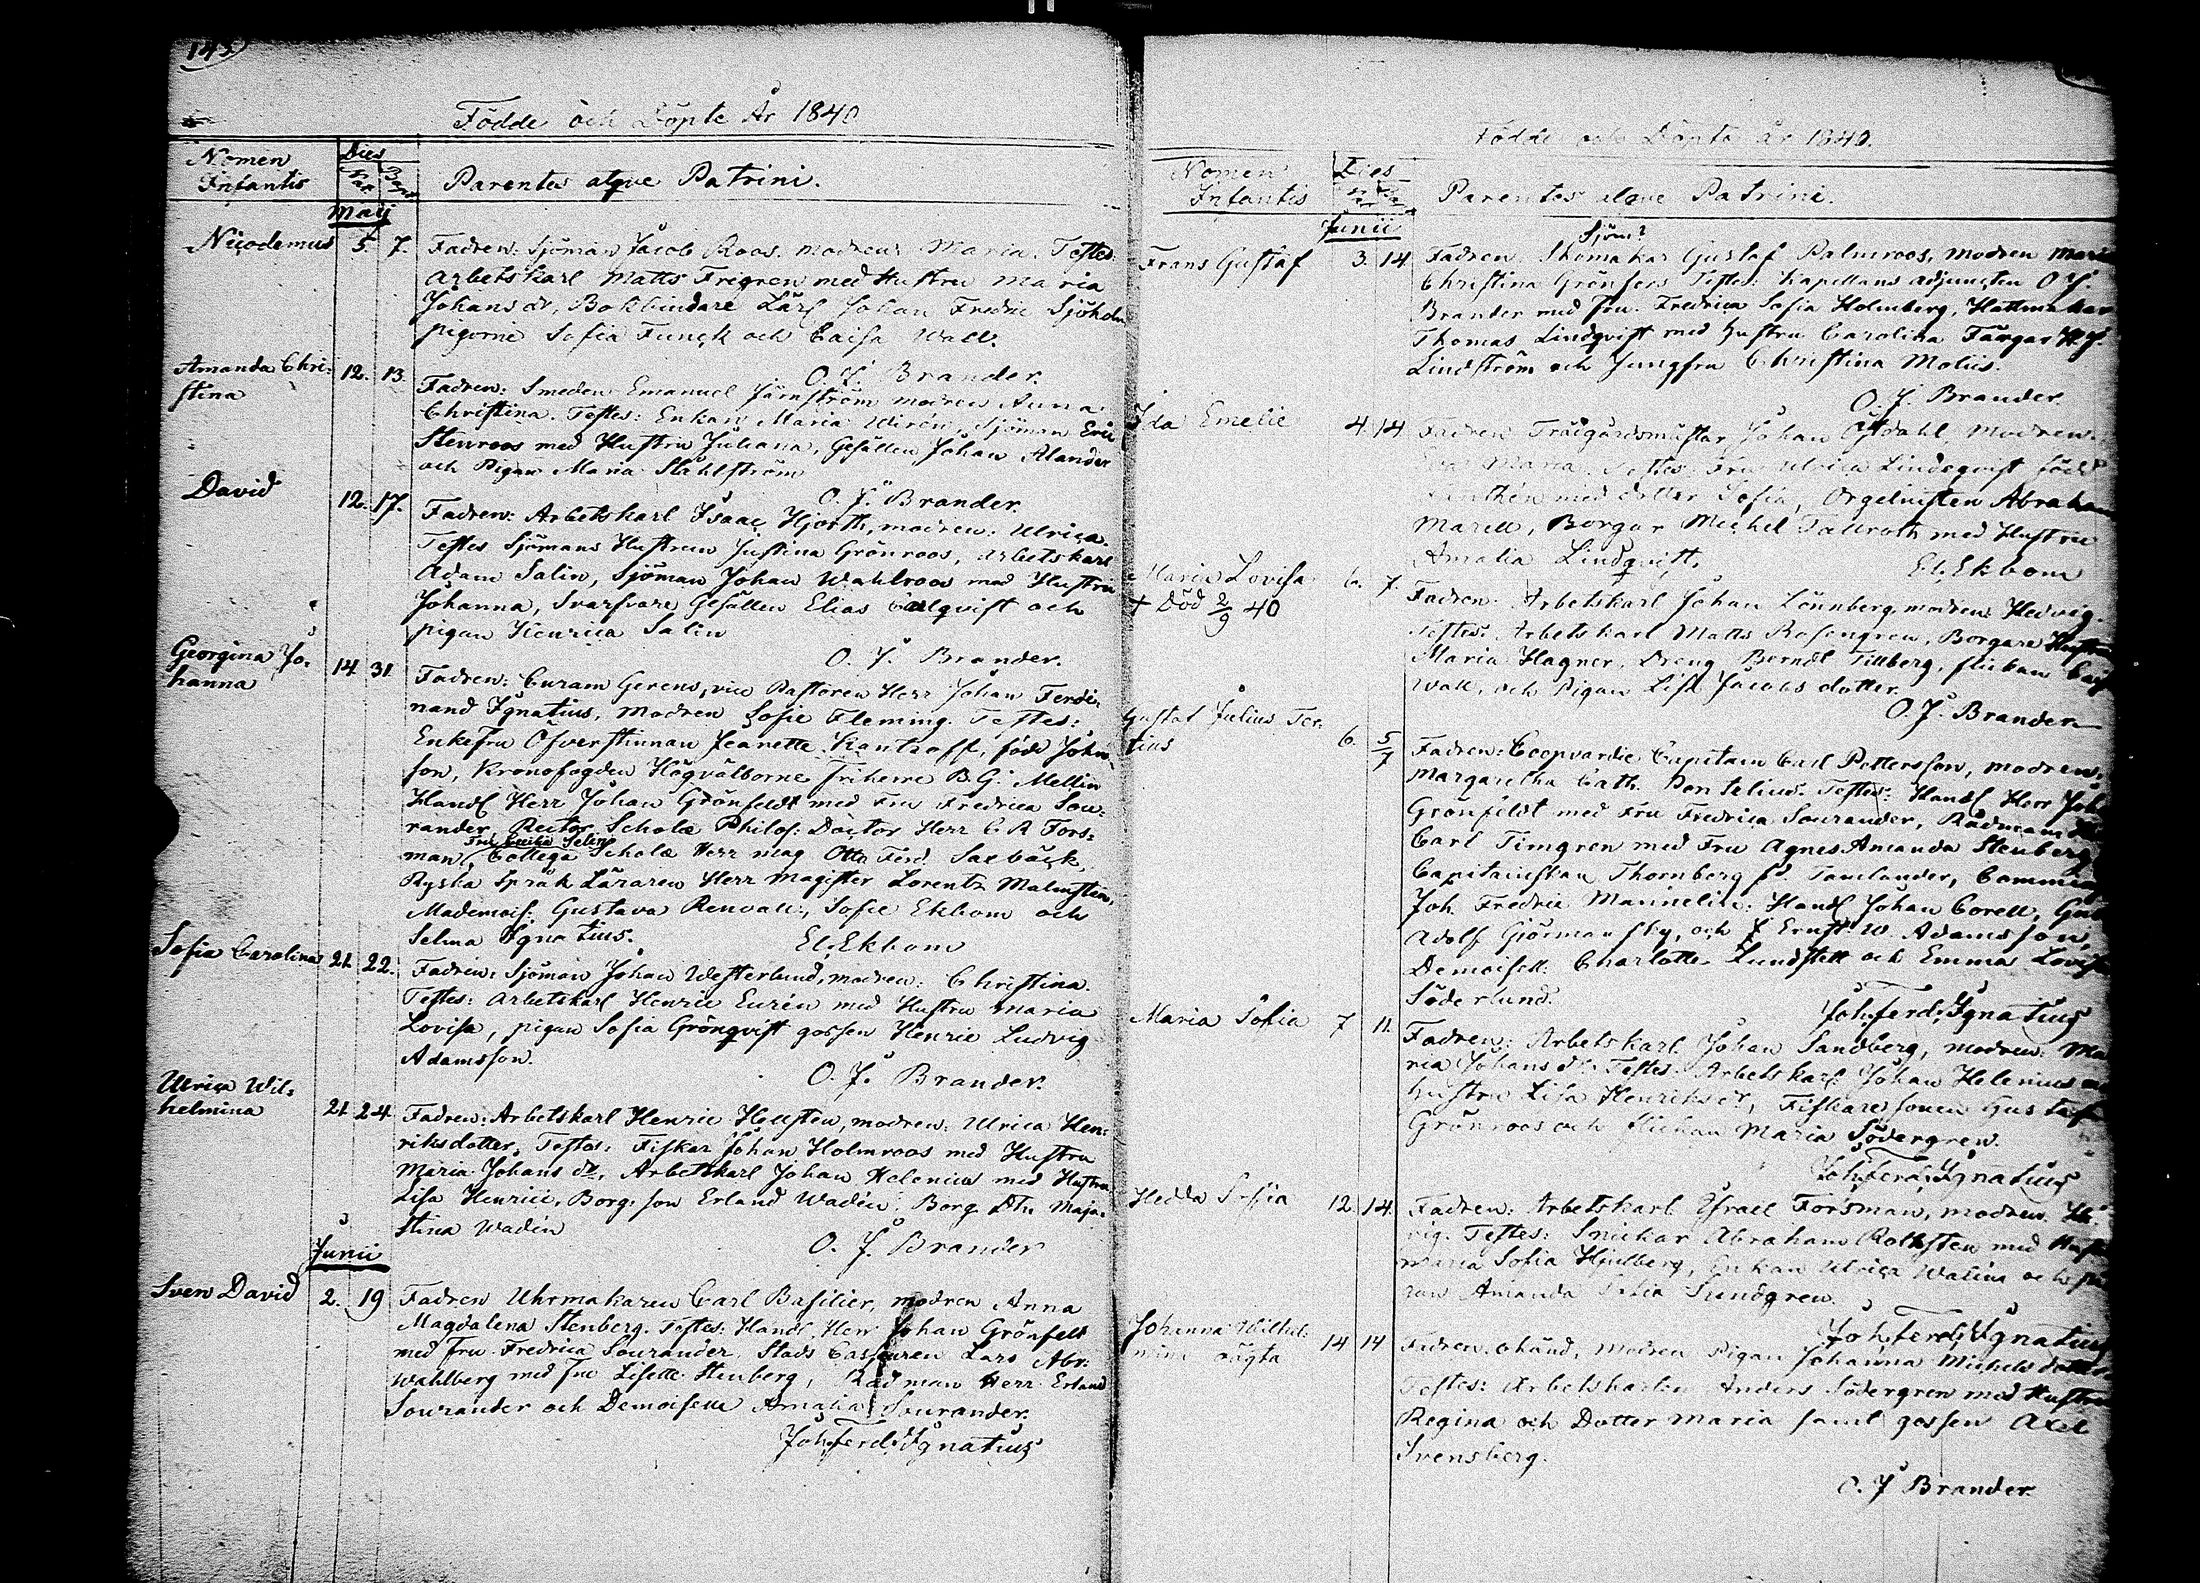 143
Födde och Döpte År 1840
Nomen Infantis
Dies
Nat. Bapt.
Parentes atque Patrini.
Maij
Nicodemus 5. 7. Fadren: Sjöman Jacob Roos. modren: Maria. Testes:
Arbetskarl Matts Frigren med Hustru Maria
Johans dr, Bokbindare Lärl Johan Fredric Sjöholm
pigorne Sofia Funck och Caisa Wall.
O. J. Brander.
Amanda Chri-
stina 12. 13. Fadren: Smeden Emanuel Järnström modren Anna
Christina. Testes: Enkan Maria Wirén, Sjöman Eric
Stenroos med Hustru Juliana, Gesällen Johan Alander
och Pigan Maria Ståhlström
O. J. Brander.
David 12. 17. Fadren: Arbetskarl Isaac Hjorth, modren: Ulrica.
Testes Sjömans Hustrun Justina Grönroos, Arbetskarl
Adam Salin, Sjöman Johan Wahlroos med Hustru
Johanna, Svarfvare Gesällen Elias Carlqvist och
pigan Henrica Salin
O. J. Brander.
Georgina Jo-
hanna 14 31. Fadren: Curam Gerens, vice Pastoren Herr Johan Ferdi-
nand Ignatius, Modren Sofie Fleming. Testes:
Enkefru Öfverstinnan Jeanette Kantzoff, född John-
son, Kronofogden Högvälborne Friherre B. G. Mellin
Handl Herr Johan Grönfeldt med Fru Fredrica Sou-
rander, Rector Scholæ Philos: Doctor Herr C R Fors-
Fru Cecilia Selin
man, Collega Scholæ Herr mag Otto Ferd. Saxbäck,
Ryska Språk Läraren Herr Magister Lorentz Malmsten,
Mademois: Gustava Renvall, Sofie Ekbom och
Selma Ignatius.
El. Ekbom
Sofia Carolina 21 22. Fadren: Sjöman Johan Westerlund, modren: Christina
Testes: Arbetskarl Henric Eurén med Hustru Maria
Lovisa, pigan Sofia Grönqvist gossen Henric Ludvig
Adamsson.
O. J. Brander.
Ulrica Wil-
helmina 21 24. Fadren: Arbetskarl Henric Hellsten, modren: Ulrica Hen-
riksdotter, Testes: Fiskar Johan Holmroos med Hustru
Maria Johans dr, Arbetskarl Johan Helenius med Hustru
Lisa Henrici, Borg: son Erland Wadén, Borg Dtr Maja
Stina Wadén
O. J. Brander
Junii
Sven David 2. 19 Fadren Uhrmakaren Carl Basilier, modren Anna
Magdalena Stenberg. Testes: Handl Herr Johan Grönfelt
med Fru Fredrica Sourander, Stads Casseuren Lars Abr:
Wahlberg med Fru Lisette Stenberg, Rådman Herr Erland
Sourander och Demoiselle Amalia Sourander.
Joh. Ferd. Ignatius
Födde och Döpte år 1840.
Nomen Infantis
Dies
Parentes atque Patrini.
Junii
Sjöm:
Frans Gustaf 3. 14 Fadren Skomakar Gustaf Palmroos, modren Maria
Christina Grönfors Testes: Kapellans adjuncten O. J.
Brander med Fru Fredrica Sofia Holmberg, Hattmakar
Thomas Lindqvist med Hustru Carolina Färgar
Lindström och Jungfru Christina Molius.
O. J. Brander.
Ida Emelie 4 14 Fadren Trädgårdsmästar Johan Östdahl, Modren
Maria. Testes: Fru Ulrica Lindeqvist född
med dotter Sofia, Orgelnisten Abraham
Marell, Borgar Michel Tallroth med Hustru
Amalia Lindqvist.
El. Ekbom
Maria Lovisa 6. 7. Fadren: Arbetskarl Johan Lönnberg, modren: Hedvig.
+ Död 2/9 40
Testes: Arbetskarl Matts Rosengren, Borgare Hustru
Maria Hagner, Dreng Berndt Tillberg, flickan Caj
Wall, och Pigan Lisa Jacobsdotter.
O. J. Brander
Gustaf Julius Ter-
tius 6. 5/7 Fadren: Coopvardie Capitain Carl Pettersson, modren:
Margaretha Cath. Pontelius. Testes: Handl Herr Joh
Grönfeldt med Fru Fredrica Sourander, Rådman
Carl Timgren med Fru Agnes Amanda Stenberg,
Capitainskan Thornberg fd. Tamlander,
Joh. Fredric Mannelin, Handl Johan Corell,
Adolf Gjörmansky, och f Ernst W. Adamsson,
Demoisell: Charlotte Lundstett och Emma Lovisa
Söderlund.
Joh. Ferd. Ignatius
Maria Sofia 7 11. Fadren: Arbetskarl Johan Sandberg, modren: Ma-
ria Johans dr. Testes: Arbetskarl Johan Helenius
hustru Lisa Henriks dr, Fiskare sonen Gustaf
Grönroos och flickan Maria Södergren.
Joh. Ferd. Ignatius
Hedda Sofia 12. 14. Fadren: Arbetskarl Israel Forsman, modren: Hed-
vig. Testes: Snickar Abraham Rothsten med Hustru
Maria Sofia Hjulberg, Enkan Ulrica Walin och
Amanda Sofia Sundgren.
Joh. Ferd. Ignatius
Johanna Wilhel-
mina oägta 14 14 Fadren okänd, modren Pigan Johanna Michelsdotter.
Testes: Arbetskarlen Anders Södergren med Hustru
Regina och Dotter Maria samt gossen Axel
Svensberg.
O. J Brander